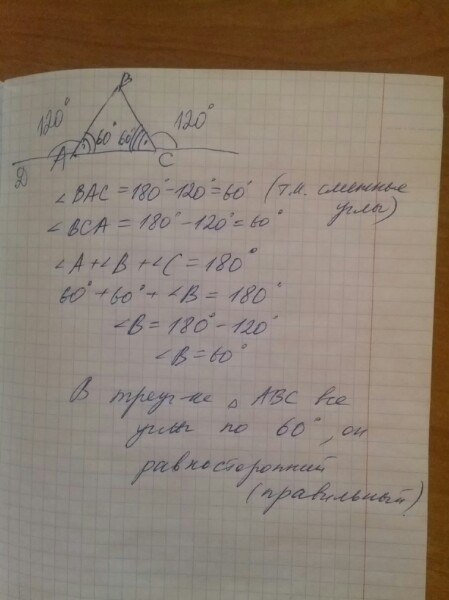 B
120° 60° 60° 120°
D A C
∠BAC = 180° - 120° = 60° (т.к. смежные углы)
∠BCA = 180° - 120° = 60°
∠A + ∠B + ∠C = 180°
60° + 60° + ∠B = 180°
∠B = 180° - 120°
∠B = 60°
В треуг-ке △ ABC все
углы по 60°, он
равносторонний
(правильный)